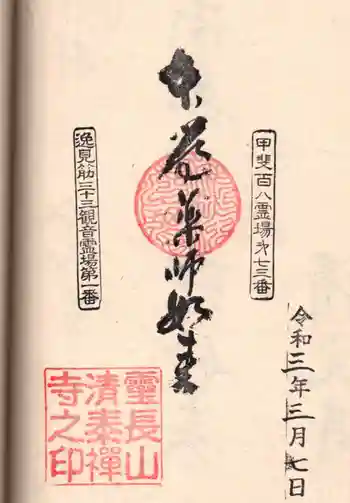 令和三年三月七日
甲斐百八霊場第七三番
薬師如来
逸見筋三十三観音霊場第一番
靈長山
清泰禪
寺之印